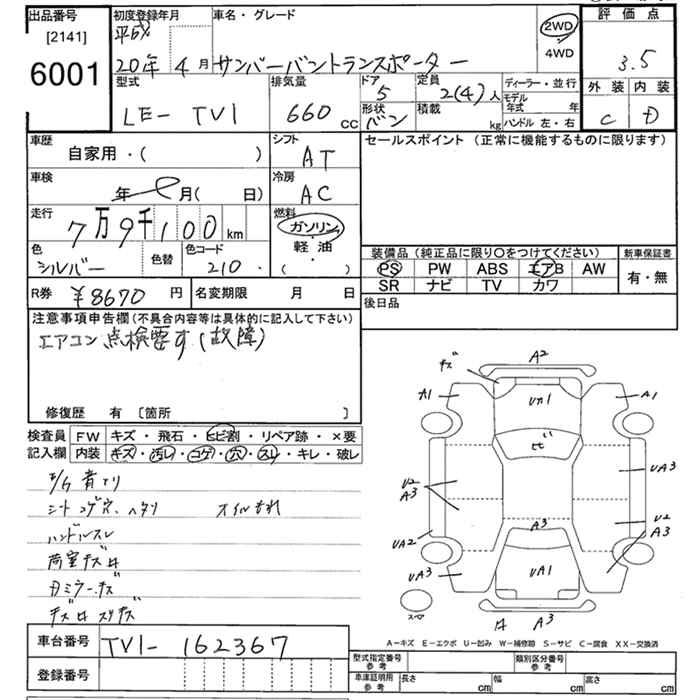 出品番号
[2141]
6001
初度登録年月
平成
20年 4月
車名・グレード
サンバーバントランスポーター
2WD
4WD
評価点
3.5
外装 内装
C D
型式
LE- TV1
排気量
660 cc
ドア
5
形状
バン
定員
2(4)人
積載
kg
ディーラー・並行
モデル年式 年
ハンドル 左・右
車歴
自家用・( )
シフト
AT
セールスポイント (正常に機能するものに限ります)
車検
年 月( 日)
冷房
AC
走行
7万9千100 km
燃料
ガソリン
軽・油
・( )
色
シルバー
色替
色コード
210
装備品 (純正品に限り○をつけてください)
PS PW ABS エアB AW
SR ナビ TV カワ
新車保証書
有・無
R券 ¥8670 円
名変期限 月 日
後日品
注意事項申告欄(不具合内容等は具体的に記入して下さい)
エアコン点検要す(故障)
修復歴 有 [箇所 ]
検査員
記入欄
FW キズ・飛石・ヒビ割・リペア跡・×要
内装 キズ・汚レ・コゲ・穴・スレ・キレ・破レ
シートコゲ穴、ヘタリ オイルもれ
ハンドルスレ
荷室キズ凹
カミラーキズ
A2
キズ
A1
UA1
A1
ヒビ
U2
A3
UA3
U2
A3
A3
UA2
UA3
UA1
A3
スペア
A-キズ E-エクボ U-凹み W-補修跡 S-サビ C-腐食 XX-交換済
車台番号 TV1- 162367
登録番号
型式指定番号
参考
類別区分番号
参考
車庫証明用
参考
長さ cm
幅 cm
高さ cm